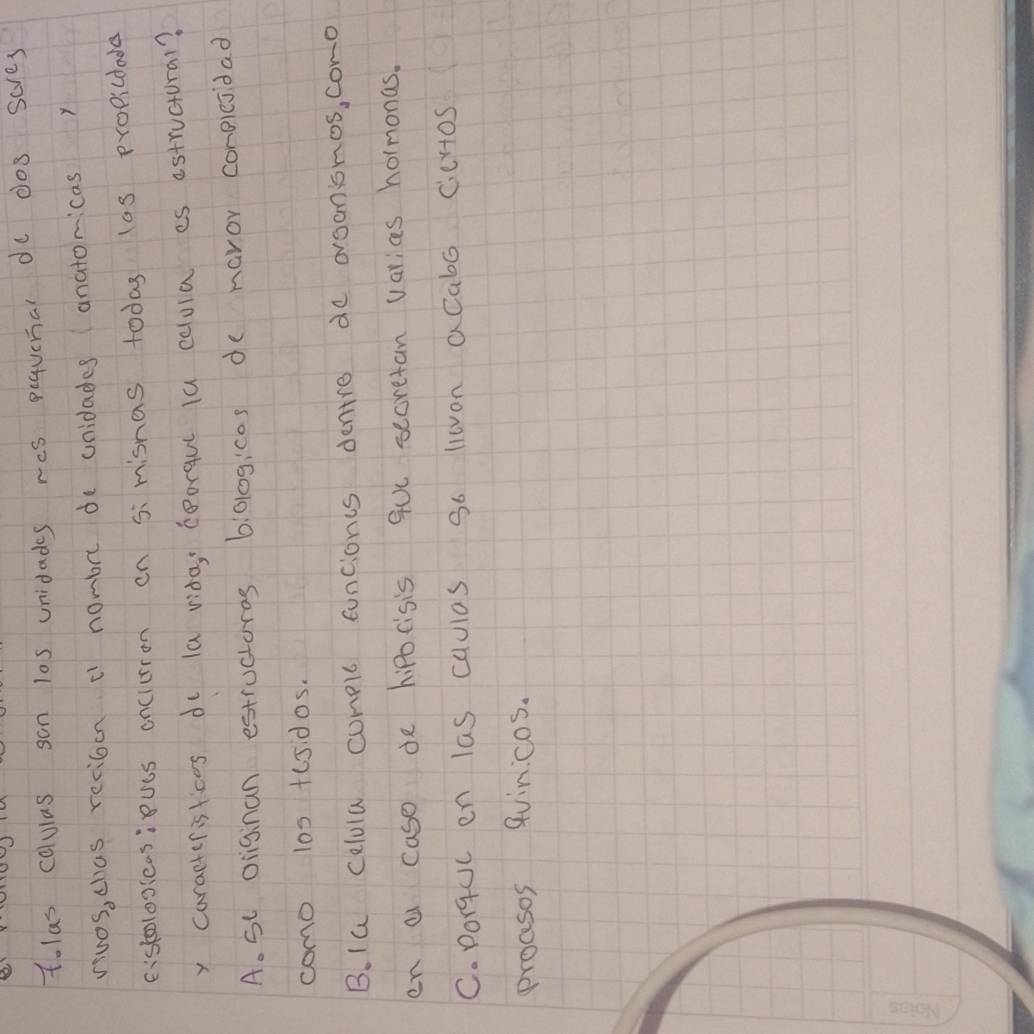 1. las celulas son los unidades mes pequeñal de dos seres
vivos, ellas reciben el nombre de unidades (anatomicas y
fisiologicas; pues encierran en si mismas todas las propiedade
y caracteristicos de la vida, ¿Porque la celula es estructural?
A. se originan estructuras biologicas de mayor complejidad
como los tejidos.
B. la celula cumple funciones dentro de organismos, como
en el caso de hipofisis que secretan varias hormonas.
C. Porque en las celulas se llevan acabo ciertos
procesos quimicos.
Notas